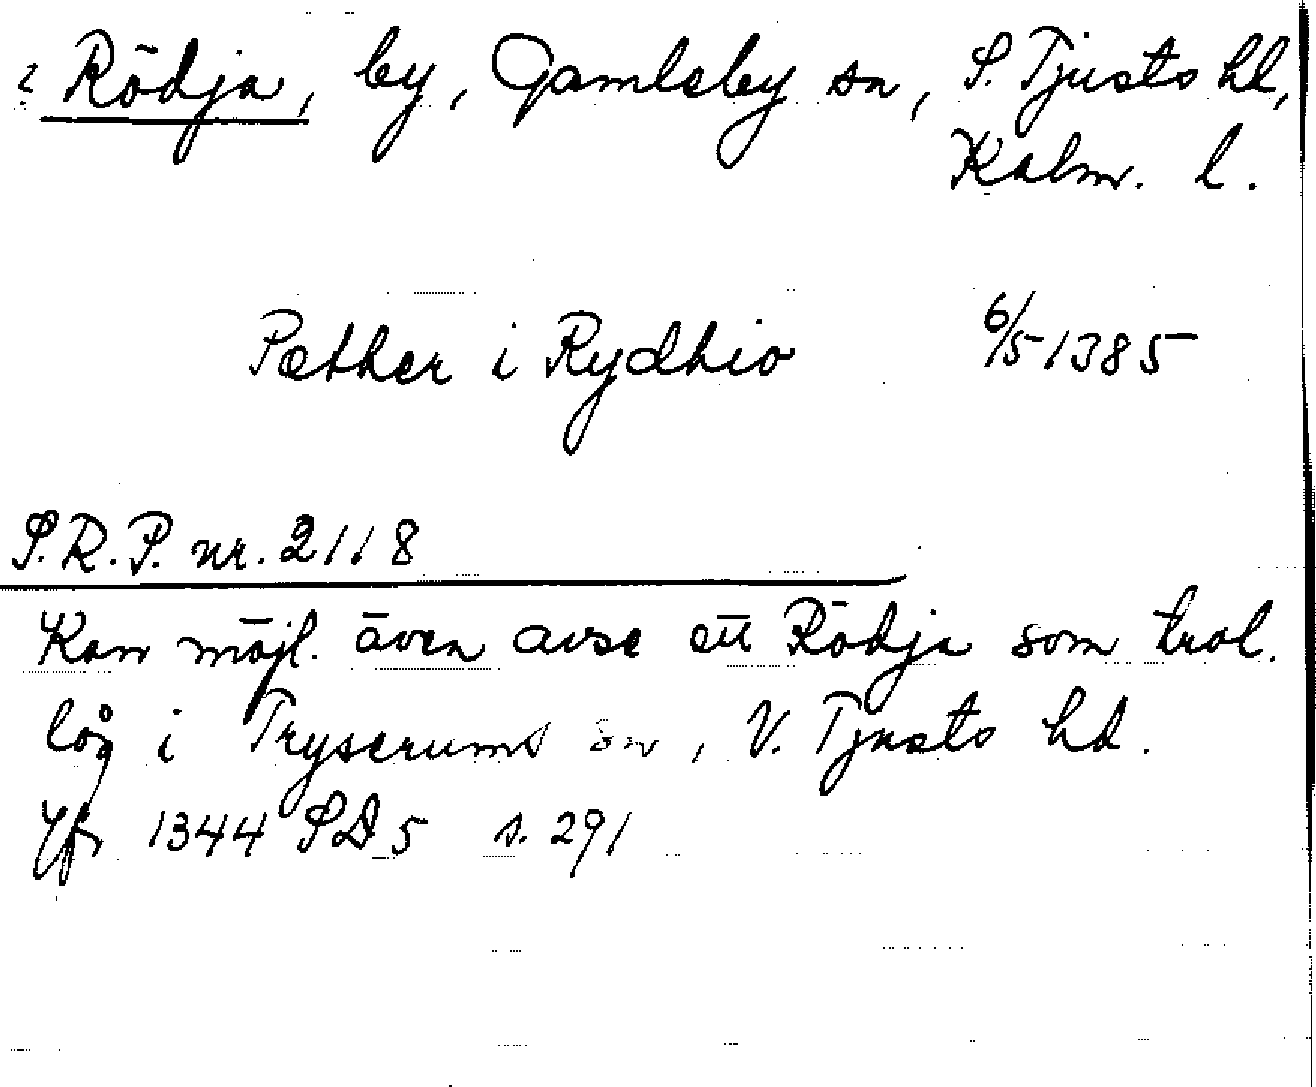 ? Rödja, by, Gamleby sn, S. Tjusts hd,
Kalm. l.
Pæther i Rydhio 6/5 1385
S.R.P. nr. 2118
Kan möjl. även avse ett Rödja som trol.
låg i Tryserums sn, N. Tjusts hd.
Jfr 1344 SD 5 s. 291